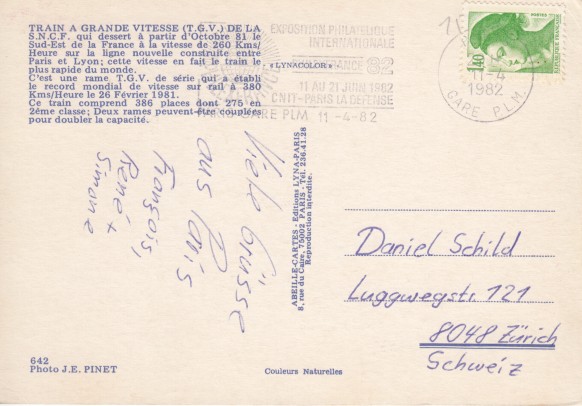 TRAIN A GRANDE VITESSE (T.G.V.) DE LA
S.N.C.F. qui dessert à partir d'Octobre 81 le
Sud-Est de la France à la vitesse de 260 Kms/
Heure sur la ligne nouvelle construite entre
Paris et Lyon; cette vitesse en fait le train le
plus rapide du monde.
C'est une rame T.G.V. de série qui a établi
le record mondial de vitesse sur rail à 380
Kms/Heure le 26 Février 1981.
Ce train comprend 386 places dont 275 en
2ème classe; Deux rames peuvent-être couplées
pour doubler la capacité.
« LYNACOLOR »
EXPOSITION PHILATELIQUE
INTERNATIONALE
FRANCE 82
11 AU 21 JUIN 1982
CNIT-PARIS LA DEFENSE
GARE PLM 11-4-82
11-4
1982
GARE P.L.M.
1,40
POSTES
REPUBLIQUE FRANÇAISE
Viele Grüsse
aus Paris
François,
René +
Simone
ABEILLE-CARTES - Editions LYNA-PARIS
8, rue du Caire, 75002 PARIS - Tél. 236.41.28
Reproduction interdite.
Daniel Schild
Luggwegstr. 121
8048 Zürich
Schweiz
642
Photo J.E. PINET
Couleurs Naturelles